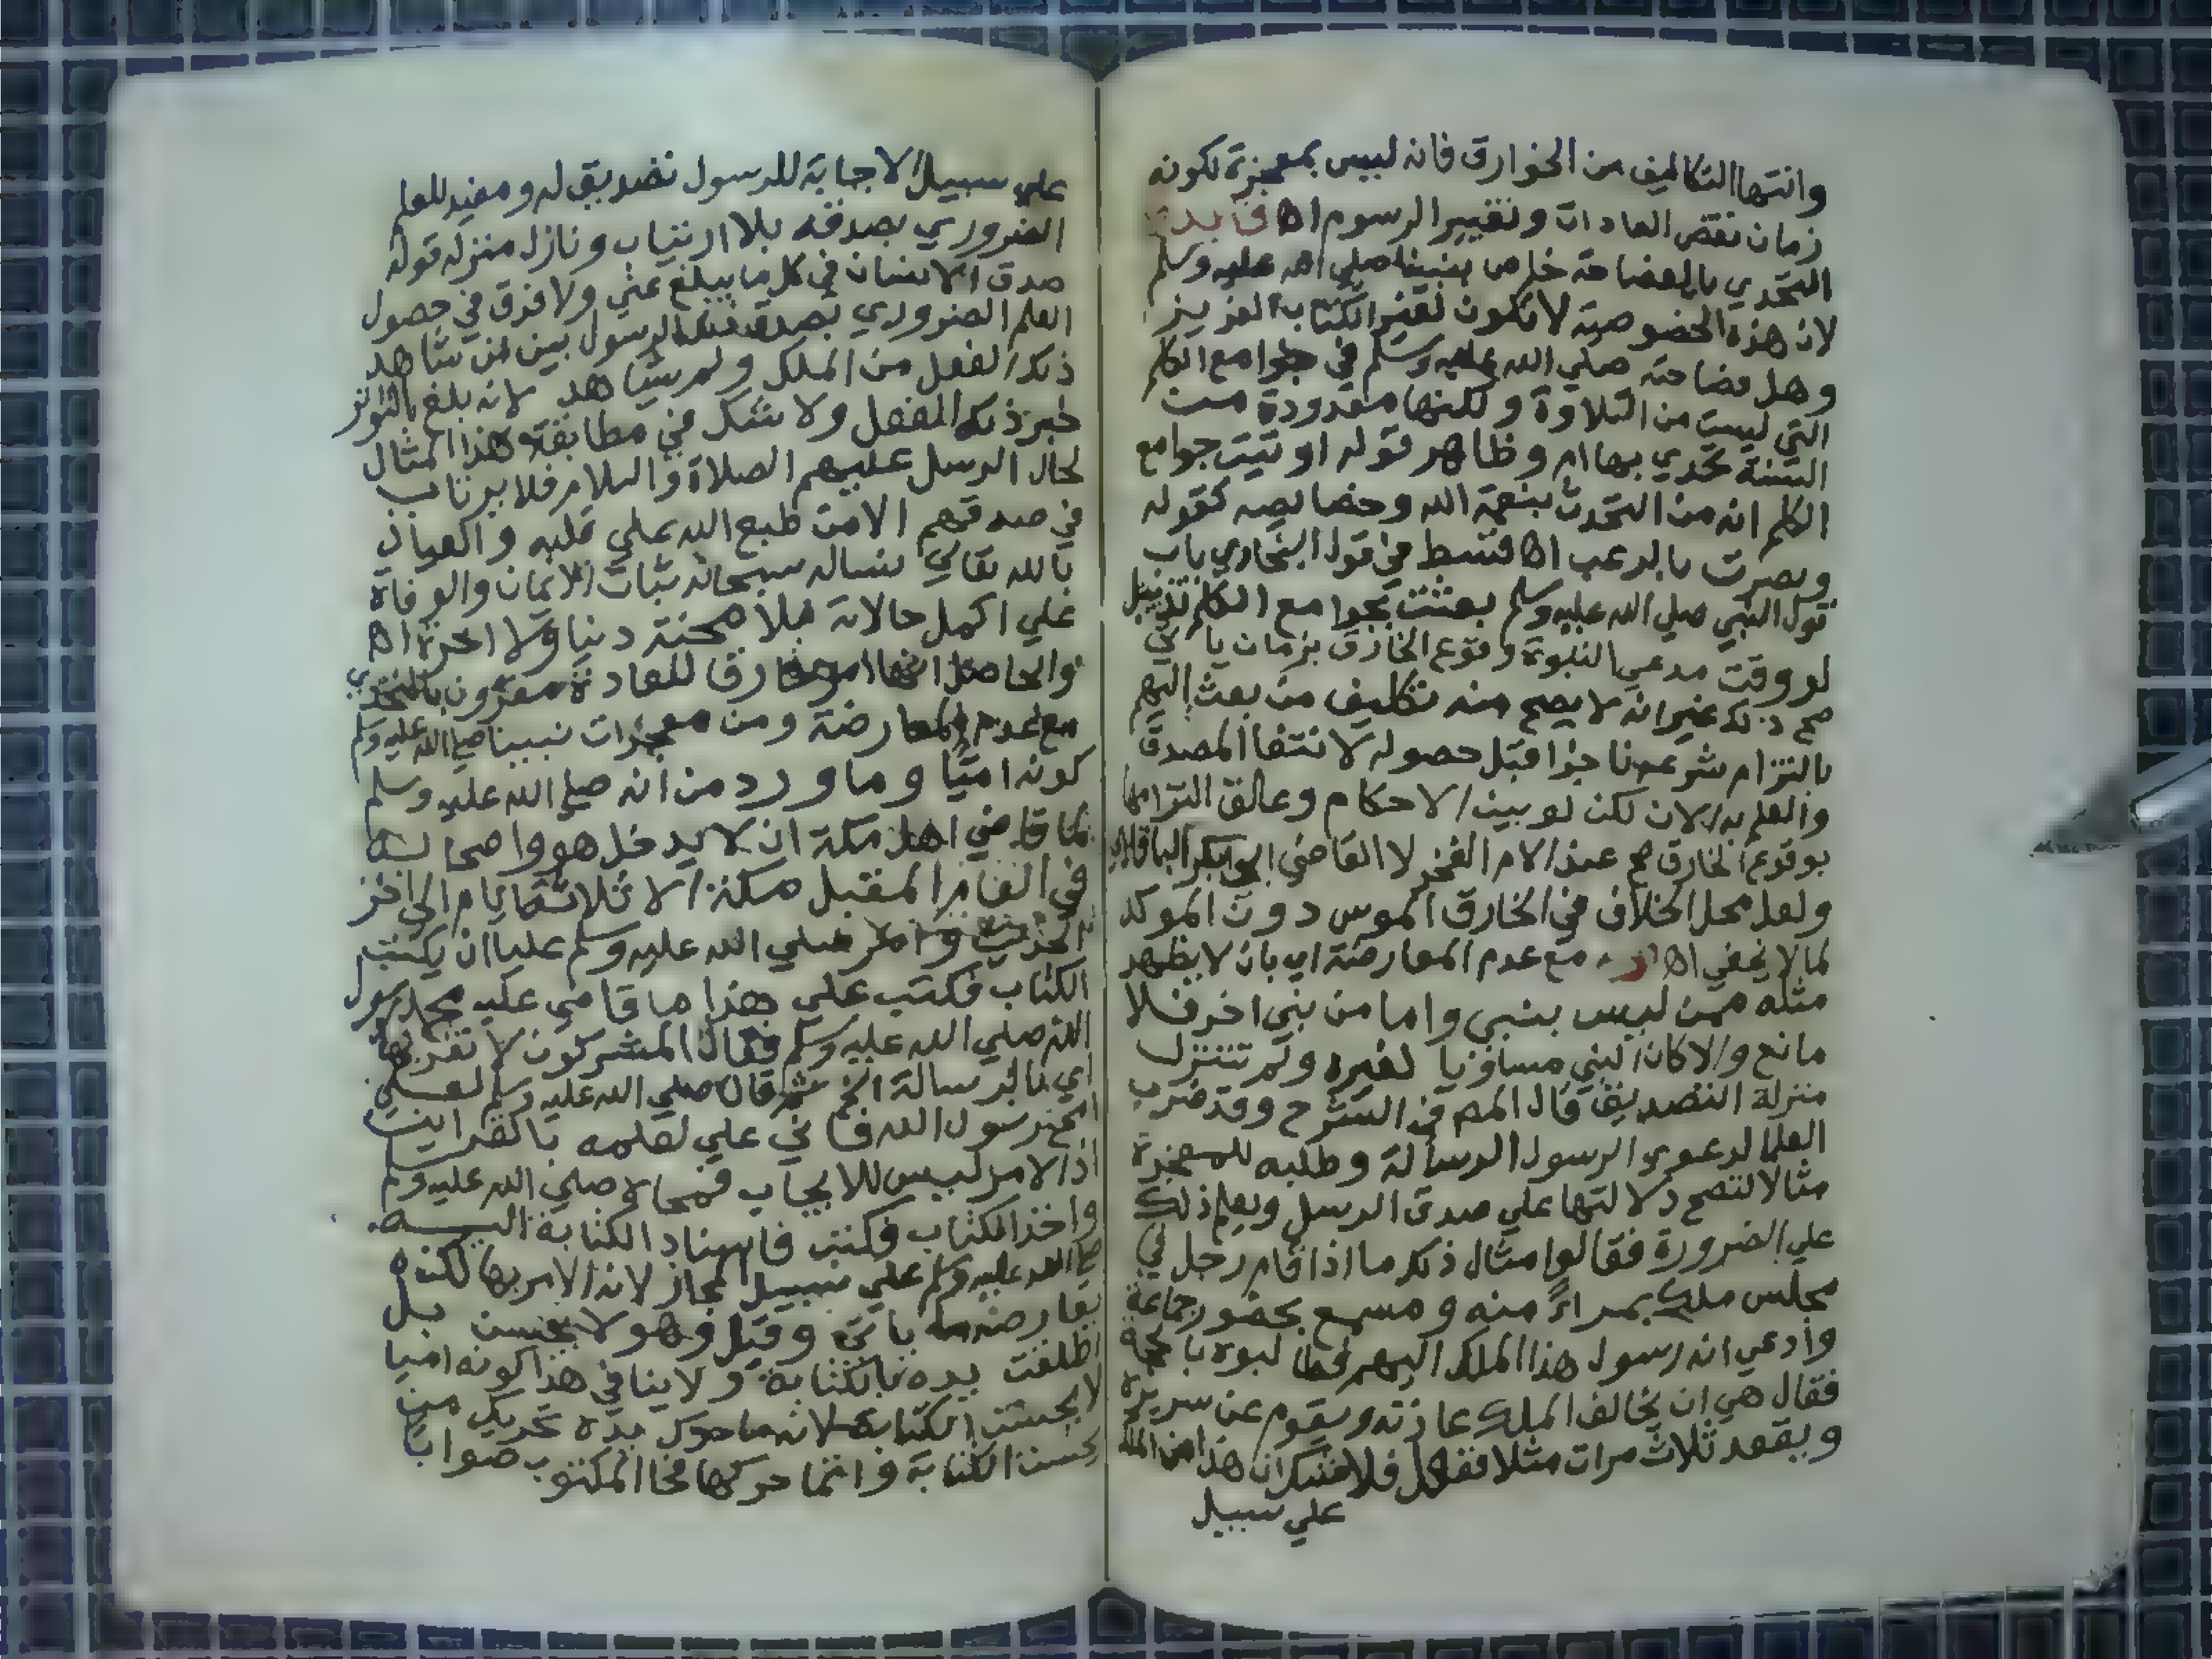 وانتها التكاليف من الخوارق فانه ليس بمعجزة لكونه
زمان نقض العادات وتغيير الرسوم اه فايدة
التحدي بالفصاحة خاص بنبينا صلي الله عليه وسلم
لان هذه الخصوصية لا تكون لغير الكتاب العزيز
وهل فصاحته صلي الله عليه وسلم في جوامع الكلم
التي ليست من التلاوة ولكنها معدودة من
السنة تحدي بها ام وظاهر قوله اوتيت جوامع
الكلم انه من التحدث بنعمة الله وخصايصه كقوله
ونصرت بالرعب اه قسط في قول البخاري باب
قول النبي صلي الله عليه وسلم بعثت بجوامع الكلم تذييل
لو وقت مدعي النبوة وقوع الخارق بزمان ياتي
صح ذلك غير انه لا يصح منه تكليف من بعث اليهم
بالتزام شرعه ناجزا قبل حصوله لانتفا المصدق
والعلم به الان لكن لو بين الاحكام وعلق التزامها
بوقوع الخارق صح عند الامام الفخر لا القاضي ابي بكر الباقلاني
ولعل محل الخلاف في الخارق المؤسس دون الموكد
لما لا يخفي اه مع عدم المعارضة اي بان لا يظهر
مثله ممن ليس بنبي واما من نبي اخر فلا
مانع والا كان النبي مساويا لغيره ولم تتنزل
منزلة التصديق قال المص في الشرح وقد ضرب
العلما لدعوي الرسول الرسالة وطلبه للمعجزة
مثالا لتتضح دلالتها علي صدق الرسل ويعلم ذلك
علي الضرورة فقالوا مثال ذلك ما اذا قام رجل في
مجلس ملك بمراءً منه ومسمع بحضور جماعة
وادعي انه رسول هذا الملك اليهم فطالبوه بالحجة
فقال هي ان يخالف الملك عادته ويقوم عن سريره
ويقعد ثلاث مرات مثلا ففعل فلا شك ان هذا من الملك
علي سبيل
علي سبيل الاجابة للرسول تصديق له ومفيد للعلم
الضروري بصدقه بلا ارتياب ونازل منزلة قوله
صدق الانسان في كل ما يبلغ عني ولا فرق في حصول
العلم الضروري بصدق ذلك الرسول بين من شاهد
ذلك الفعل من الملك ولم يشاهد لانه بلغ بالتواتر
خبر ذلك الفعل ولا شك في مطابقة هذا المثال
لحال الرسل عليهم الصلاة والسلام فلا يرتاب
في صدقهم الا من طبع الله علي قلبه والعياذ
بالله تعالي نساله سبحانه ثبات الايمان والوفاة
علي اكمل حالاته بلا محنة دنيا ولا اخرة اه
والحاصل انها امر خارق للعادة مقرون بالتحدي
مع عدم المعارضة ومن معجزات نبينا صلي الله عليه وسلم
كونه اميًّا وما ورد من انه صلي الله عليه وسلم
لما قاضي اهل مكة ان لا يدخل هو واصحابه
في العام المقبل مكة الا ثلاثة ايام الي اخر
الحديث وامر صلي الله عليه وسلم عليا ان يكتب
الكتاب فكتب علي هذا ما قاضي عليه محمد رسول
الله صلي الله عليه وسلم فقال المشركون لا نقر بها
اي بالرسالة الخ ثم قال صلي الله عليه وسلم لعلي
امح رسول الله فابي علي لعلمه بالقراين
اذ الامر ليس للايجاب فمحاه صلي الله عليه وسلم
واخذ الكتاب فكتب فاسناد الكتابة اليه
صلي الله عليه وسلم علي سبيل المجاز لانه الامر بها لكنه
يعارضه ما ياتي وقيل وهو لا يحسن بل
اطلقت يده بالكتابة ولا ينافي هذا كونه اميا
لا يحسن الكتابة لانه ما حرك يده تحريك من
يحسن الكتابة وانما حركها فجا المكتوب صوابا